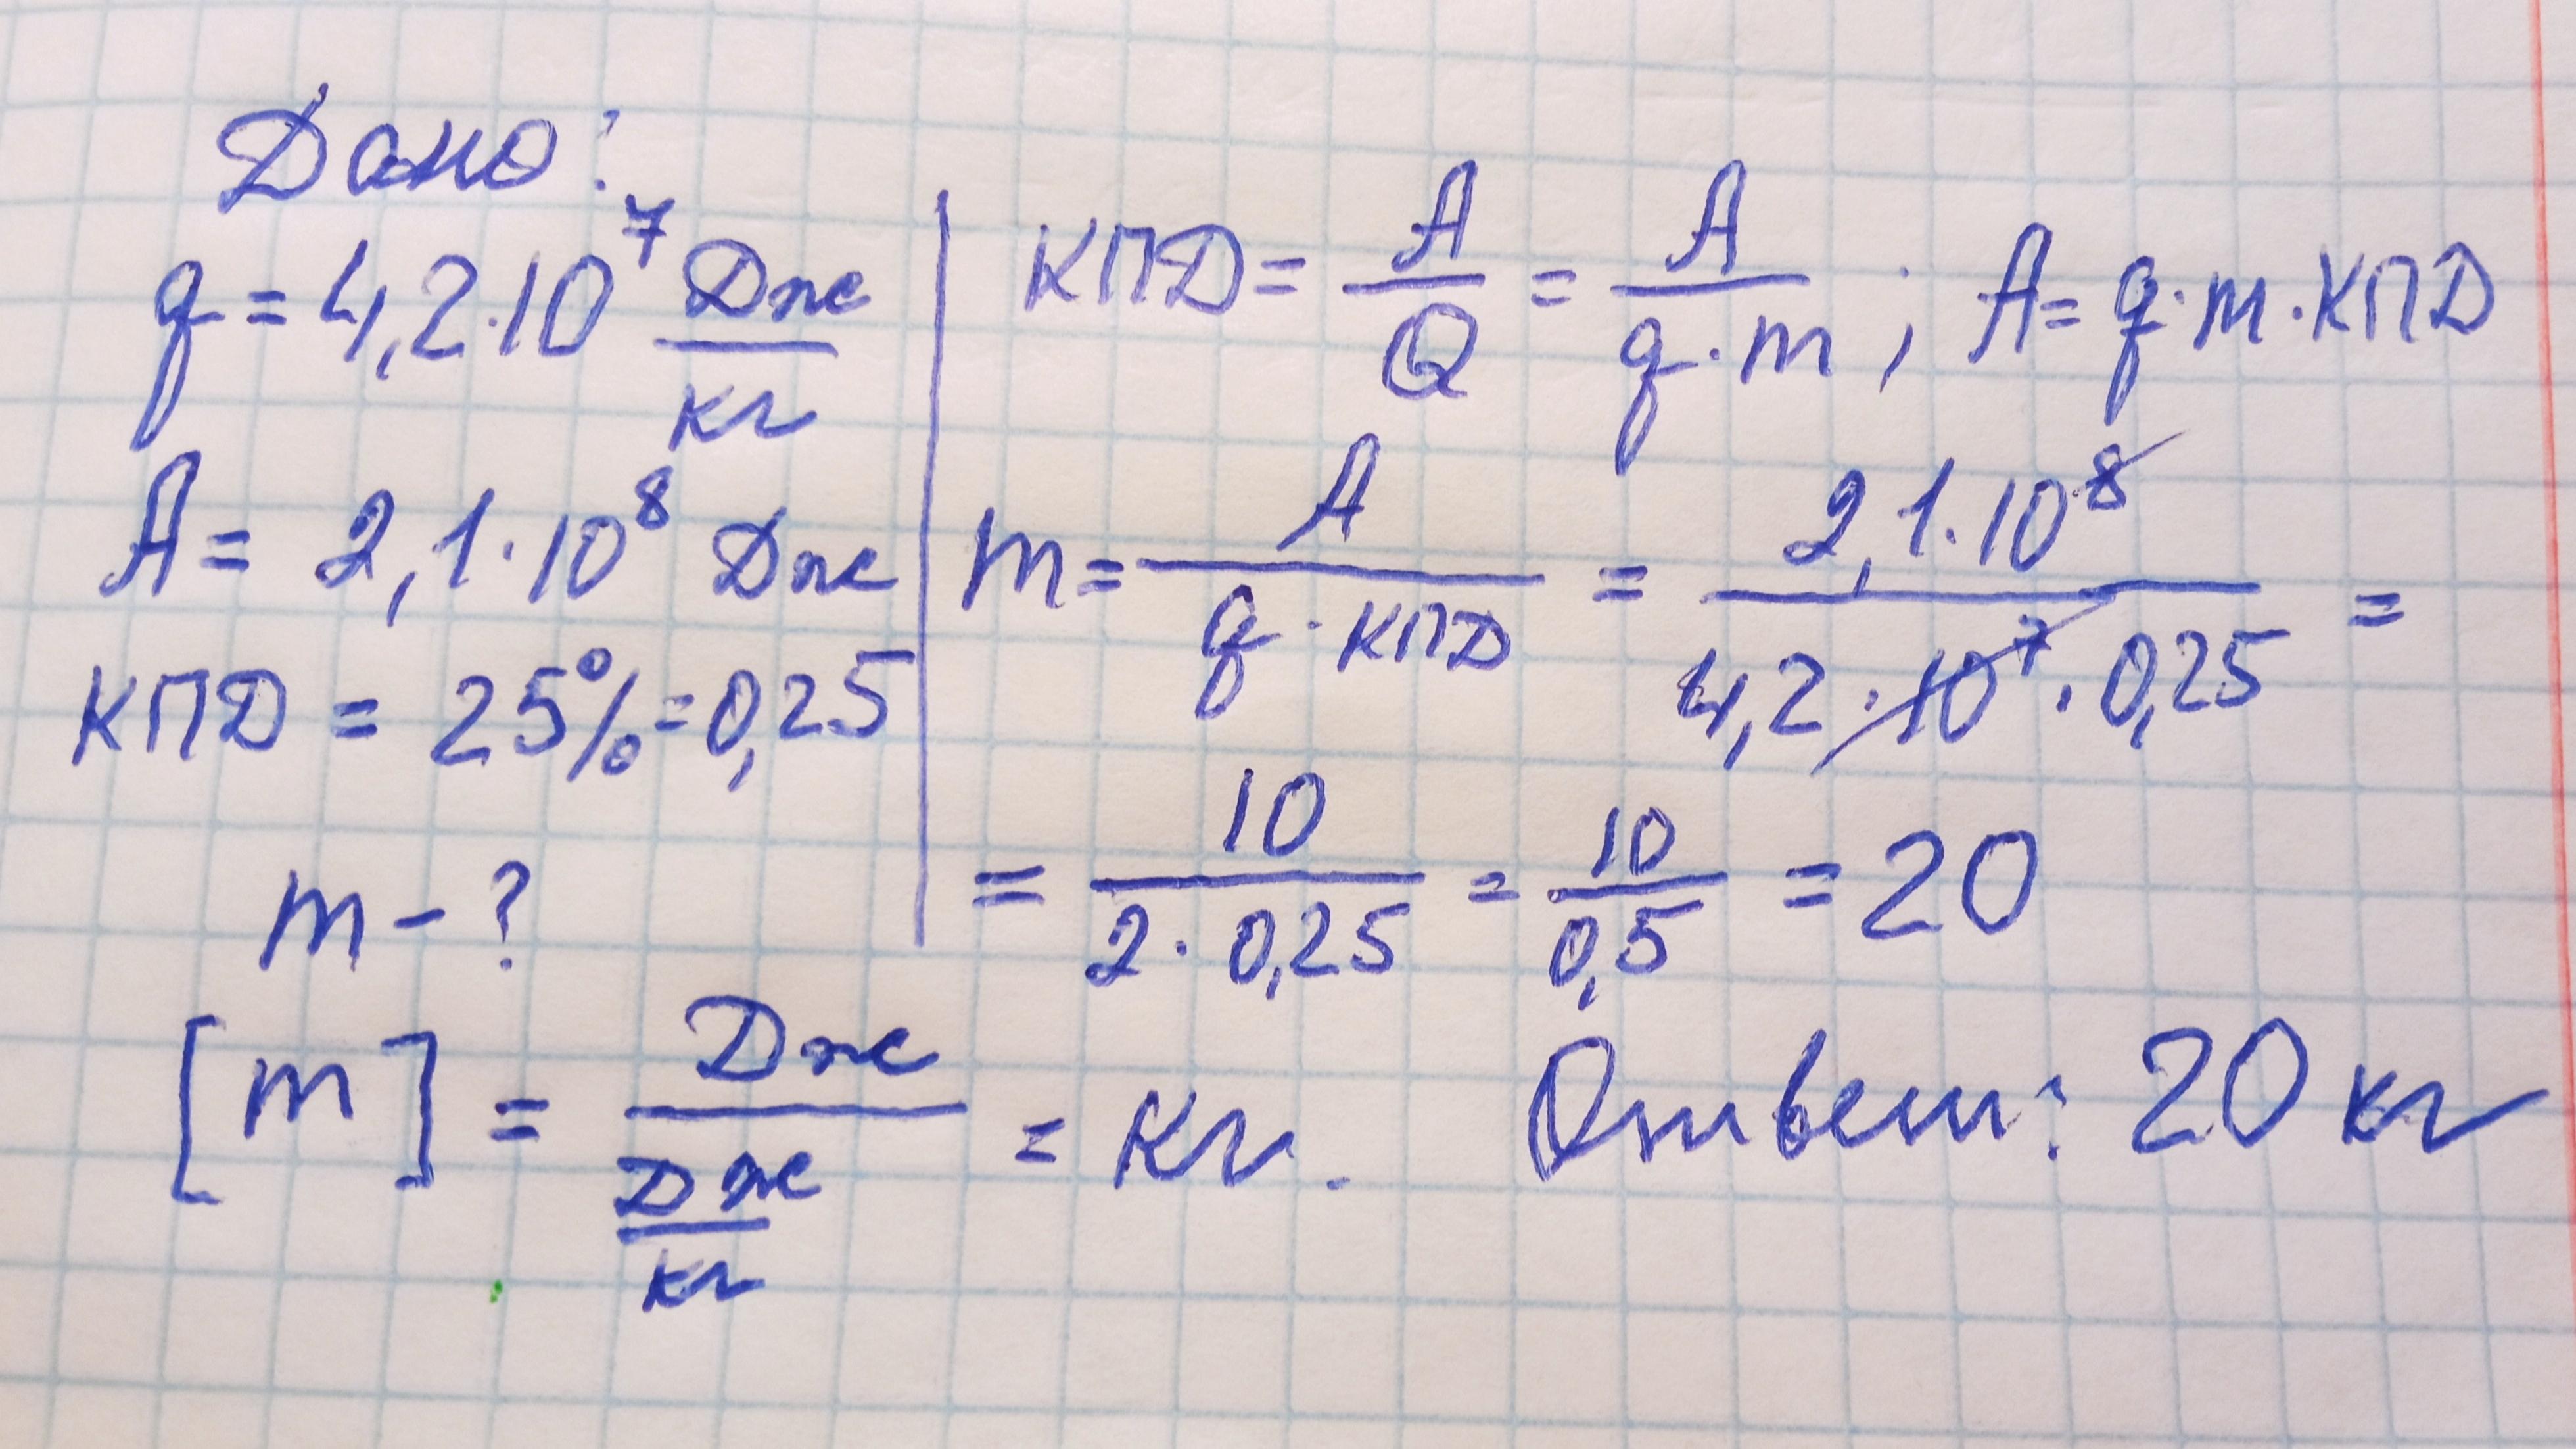 Дано:
q = 4,2·10⁷ Дж/кг
A = 2,1·10⁸ Дж
КПД = 25% = 0,25
m - ?
КПД = A/Q = A/(q·m) ; A = q·m·КПД
m = A/(q·КПД) = 2,1·10⁸/(4,2·10⁷·0,25) =
= 10/(2·0,25) = 10/0,5 = 20
[m] = Дж/(Дж/кг) = кг.
Ответ: 20 кг